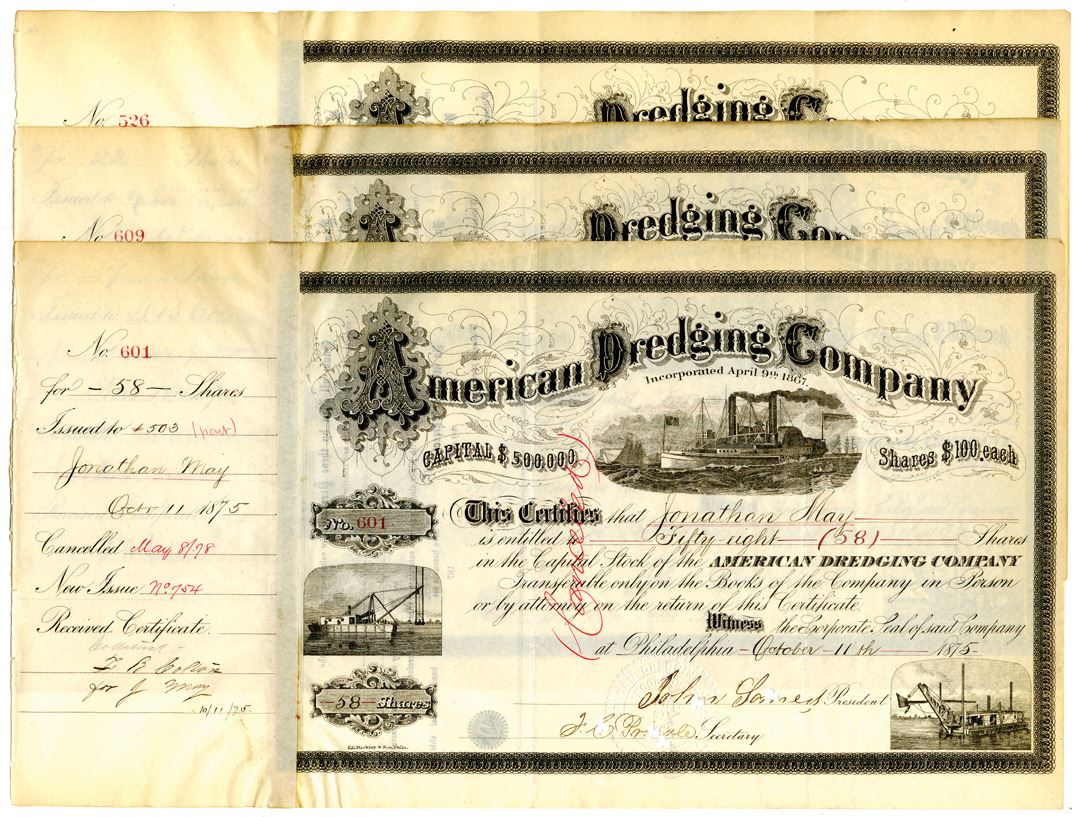 No. 526
Dredging Co
No. 609
Dredging Com
No. 601
for — 58 — Shares
Issued to
503 (part)
Jonathan May
Octr 11 1875
Cancelled May 8/78
New Issue No 754
Received Certificate.
for J May
10/11/75
American Dredging Company
Incorporated April 9th 1867.
CAPITAL $500,000.
Shares $100, each
No. 601
This Certifies that Jonathan May
is entitled to Fifty eight (58) Shares
in the Capital Stock of the AMERICAN DREDGING COMPANY
Transferable only on the Books of the Company in Person
or by attorney on the return of this Certificate.
Witness the Corporate Seal of said Company
at Philadelphia October 11th 1875
John Somers President
Secretary
— 58 — Shares
Cancelled